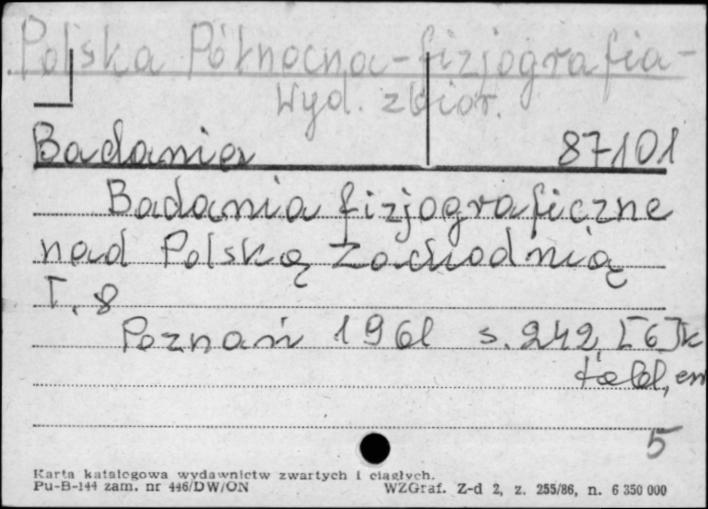 Polska Północna-fizjografia-
Wyd. zbior.
Badania 87101
Badania fizjograficzne
nad Polską Zachodnią
T. 8
Poznań 1961 s. 242, [6] k
tabl, err
5
Karta katalogowa wydawnictw zwartych i ciągłych.
Pu-B-144 zam. nr 446/DW/ON WZGraf. Z-d 2, z. 255/86, n. 6 350 000